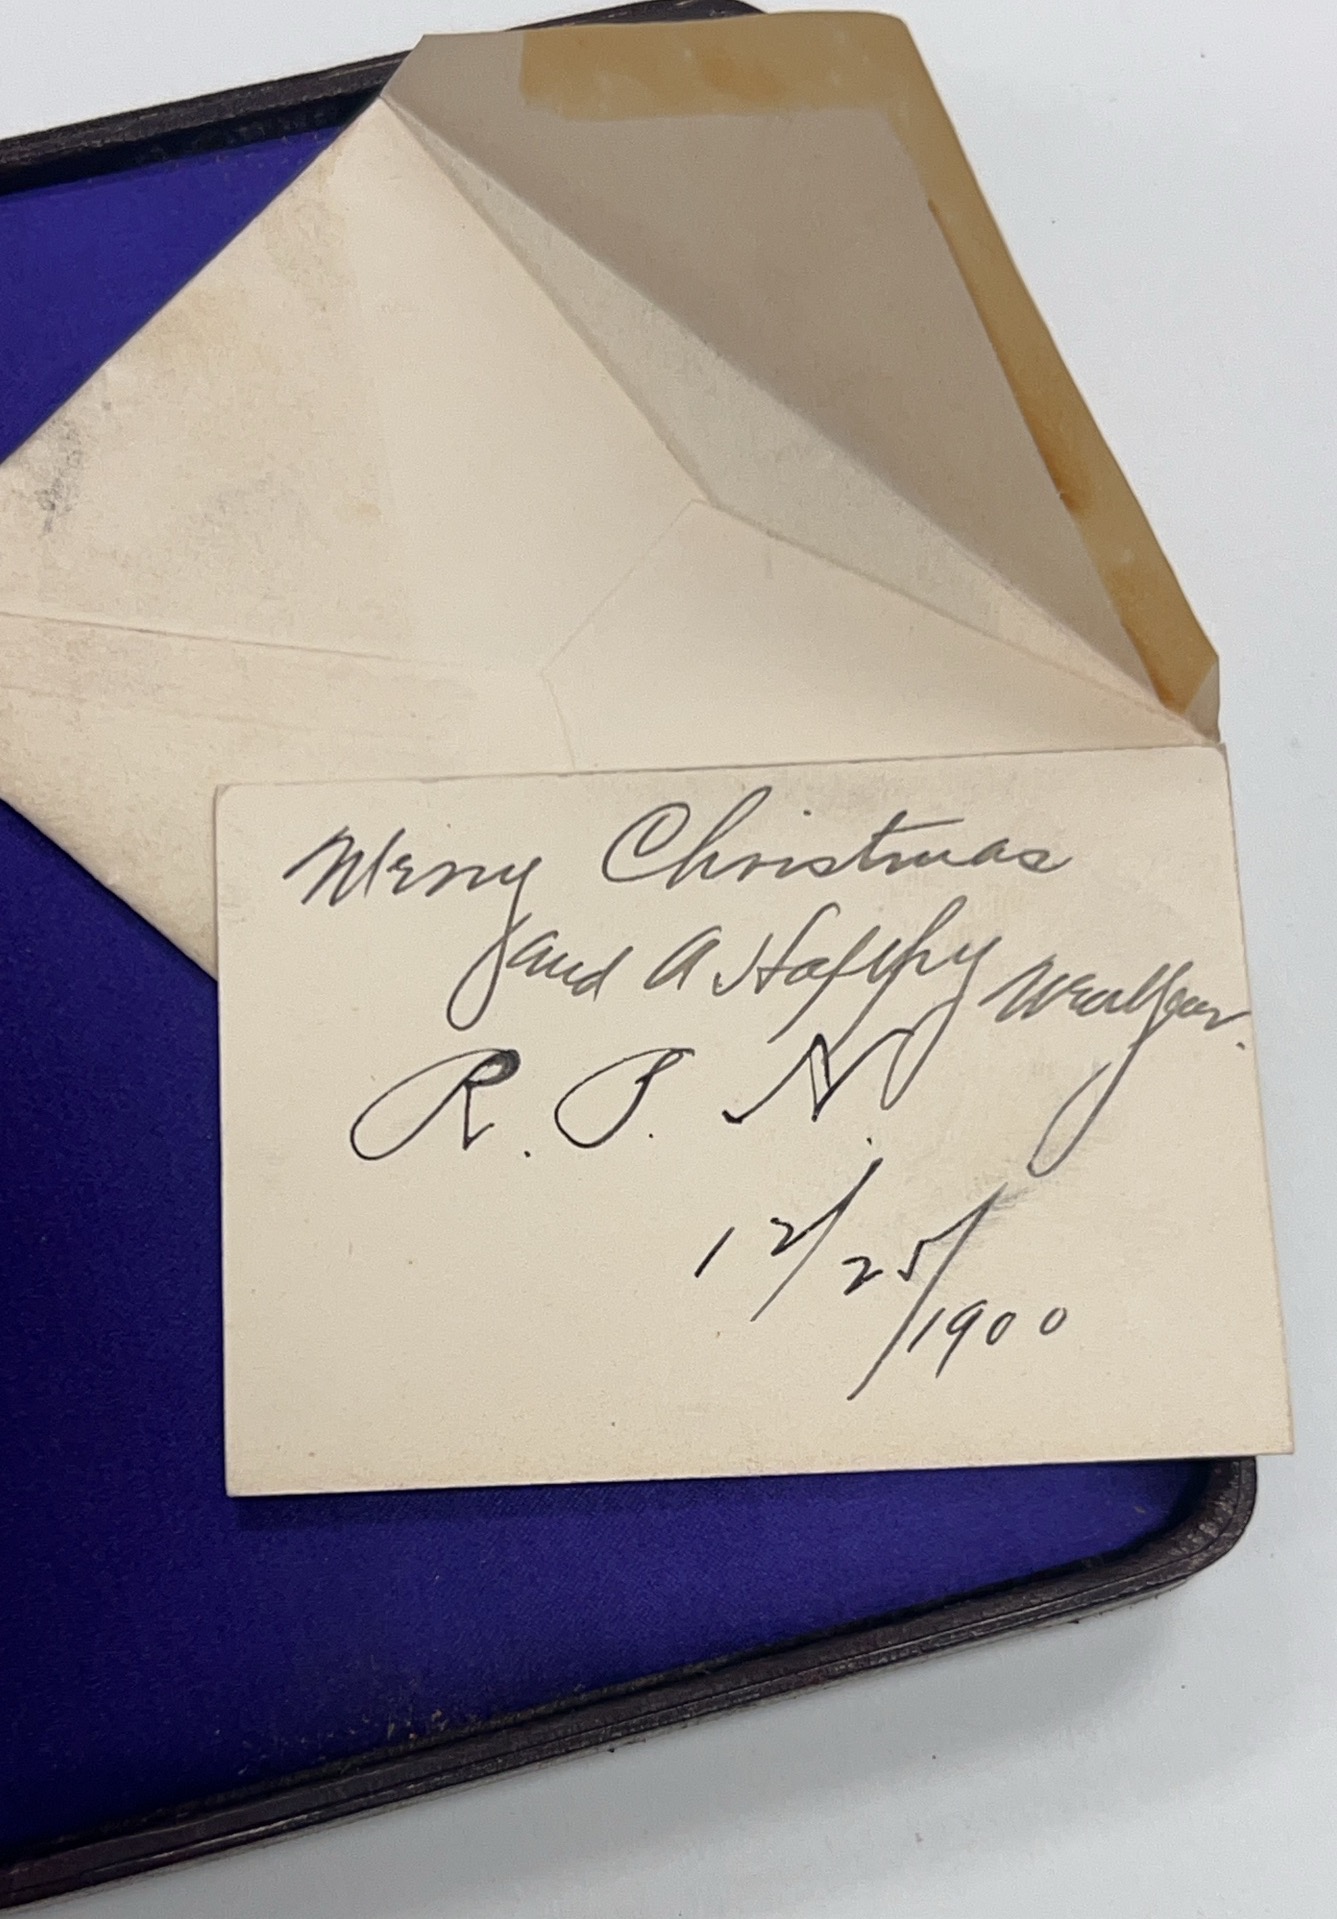 Merry Christmas
and A Happy New Year.
R. P. N.
12/25/1900